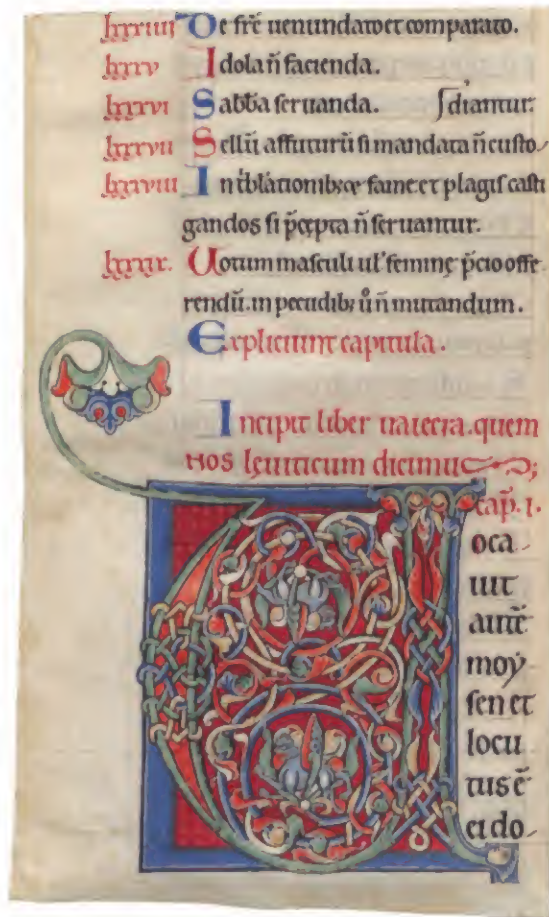 lxxxiiii De fr̄e uenundato et comparato.
lxxxv Idola n̄ facienda.
lxxxvi Sabb̄a seruanda. ſdiantur.
lxxxvii Bellū affuturū si mandata n̄ custo
lxxxviii In tribulationibus fame et plagis casti
gandos si p̄cepta n̄ seruantur.
lxxxix. Uotum masculi ul' feminę p̄cio offe
rendū. in pecudib; ů n̄ mutandum.
Expliciunt capitula.
Incipit liber uaiecra. quem
nos leuiticum dicimus;
cap̄. 1.
Voca
uit
autē
moy
sen et
locu
tus ē
ei do